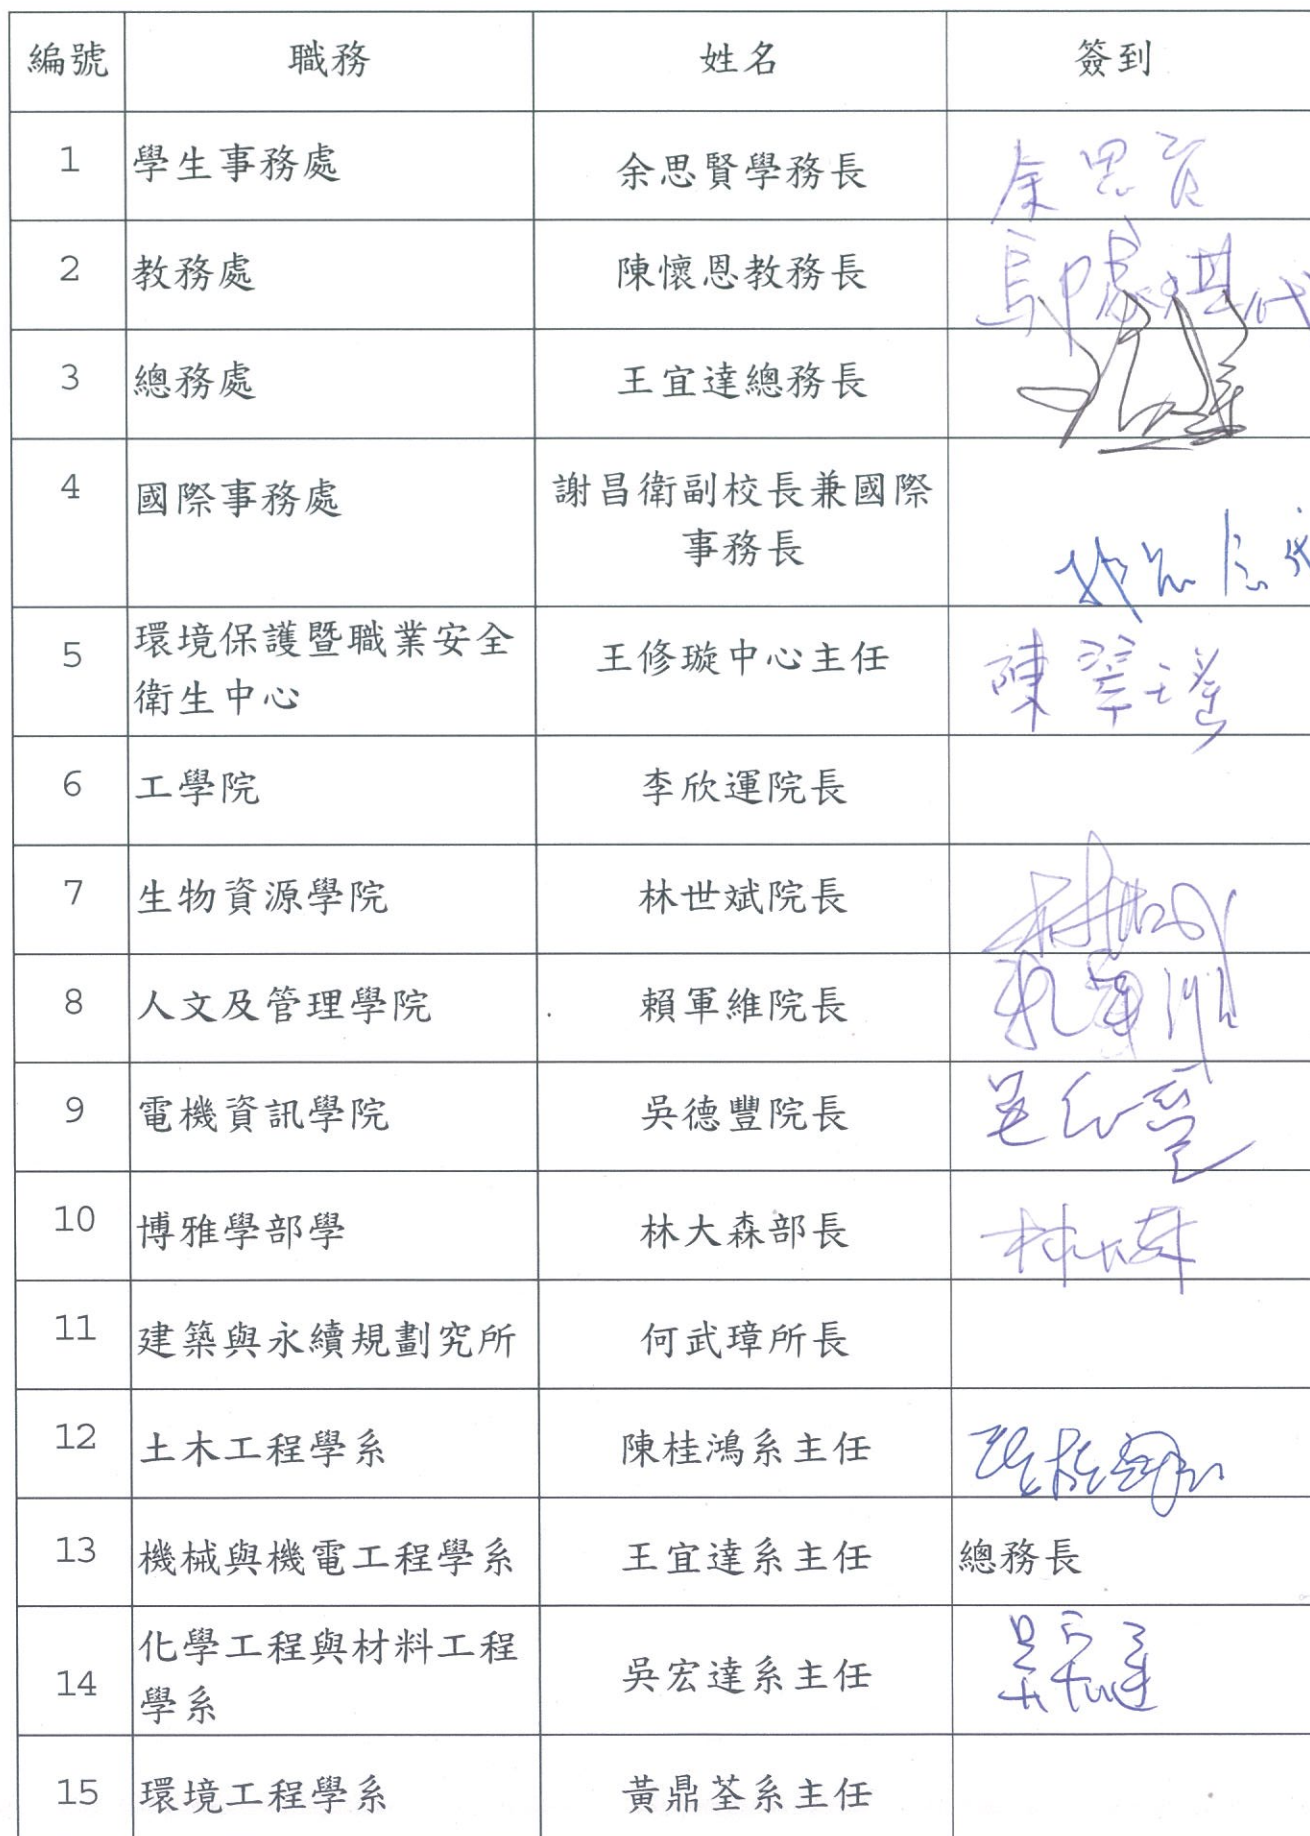 編號 職務 姓名 簽到
1 學生事務處 余思賢學務長 余思賢
2 教務處 陳懷恩教務長 代
3 總務處 王宜達總務長
4 國際事務處 謝昌衛副校長兼國際
事務長
5 環境保護暨職業安全
衛生中心 王修璇中心主任 陳翠瑤
6 工學院 李欣運院長
7 生物資源學院 林世斌院長 林世斌
8 人文及管理學院 賴軍維院長
9 電機資訊學院 吳德豐院長 吳德豐
10 博雅學部學 林大森部長 林大森
11 建築與永續規劃究所 何武璋所長
12 土木工程學系 陳桂鴻系主任 陳桂鴻
13 機械與機電工程學系 王宜達系主任 總務長
14 化學工程與材料工程
學系 吳宏達系主任 吳宏達
15 環境工程學系 黃鼎荃系主任